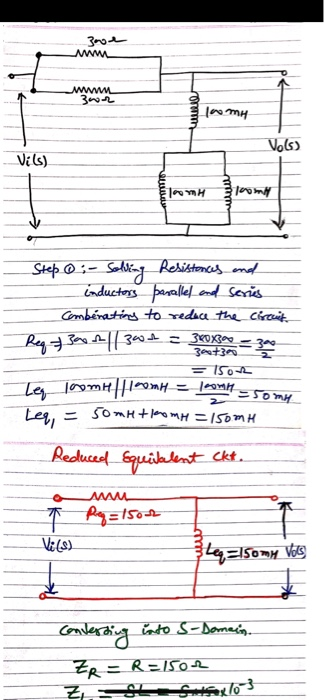 300Ω
300Ω
100mH
Vi(s)
Vo(s)
100mH
100mH
Step ① :- Solving Resistances and
inductors parallel and series
combinations to reduce the circuit.
Req → 300Ω || 300Ω = 300x300 / 300+300 = 300 / 2
= 150Ω
Leq 100mH || 100mH = 100mH / 2 = 50mH
Leq1 = 50mH + 100mH = 150mH
Reduced Equivalent Ckt.
Req = 150Ω
Vi(s)
Leq = 150mH
Vo(s)
Converting into S-Domain.
ZR = R = 150Ω
ZL = SL = S×150×10-3